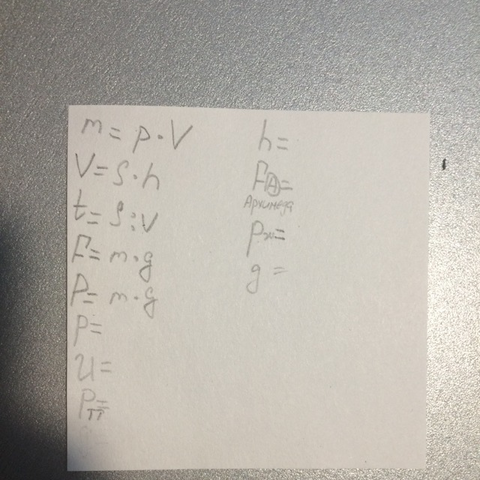 m = p · V
V = S · h
t = S : v
F = m · g
P = m · g
p =
U =
Pтт=
h =
FA =
Архимеда
pж =
g =